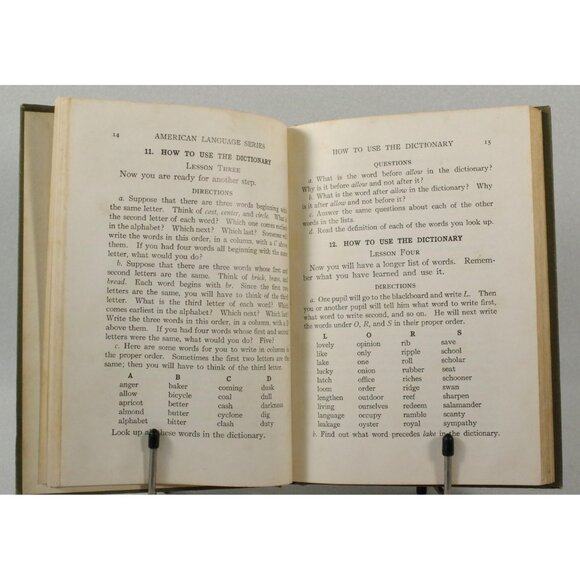 14 AMERICAN LANGUAGE SERIES
11. HOW TO USE THE DICTIONARY
LESSON THREE
Now you are ready for another step.
DIRECTIONS
a. Suppose that there are three words beginning with
the same letter. Think of cent, center, and circle. What is
the second letter of each word? Which one comes earliest
in the alphabet? Which next? Which last? Someone will
write the words in this order, in a column, with a C above
them. If you had four words all beginning with the same
letter, what would you do?
b. Suppose that there are three words whose first and
second letters are the same. Think of brick, brave, and
bread. Each word begins with br. Since the first two
letters are the same, you will have to think of the third
letter. What is the third letter of each word? Which
comes earliest in the alphabet? Which next? Which last?
Write the three words in this order, in a column, with a B
above them. If you had four words whose first and second
letters were the same, what would you do? Five?
c. Here are some words for you to write in columns in
the proper order. Sometimes the first two letters are the
same; then you will have to think of the third letter.
A B C D
anger baker coming dusk
allow bicycle coal dull
apricot better cash darkness
almond butter cyclone dig
alphabet bitter clash duty
Look up all these words in the dictionary.
HOW TO USE THE DICTIONARY 15
QUESTIONS
a. What is the word before allow in the dictionary?
Why is it before allow and not after it?
b. What is the word after allow in the dictionary? Why
is it after allow and not before it?
c. Answer the same questions about each of the other
words in the lists.
d. Read the definition of each of the words you look up.
12. HOW TO USE THE DICTIONARY
LESSON FOUR
Now you will have a longer list of words. Remem-
ber what you have learned and use it.
DIRECTIONS
a. One pupil will go to the blackboard and write L. Then
you or another pupil will tell him what word to write first,
what word to write second, and so on. He will next write
the words under O, R, and S in their proper order.
L O R S
lovely opinion rib save
like only ripple school
lake one roll scholar
lucky onion rubber seat
latch office riches schooner
loom order ridge swan
lengthen outdoor reef sharpen
living ourselves redeem salamander
language occupy ramble scanty
leakage oyster royal sympathy
b. Find out what word precedes lake in the dictionary.